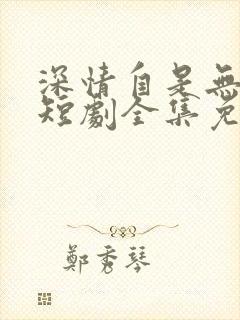 深情自是無
短劇全集免
鄭秀琴